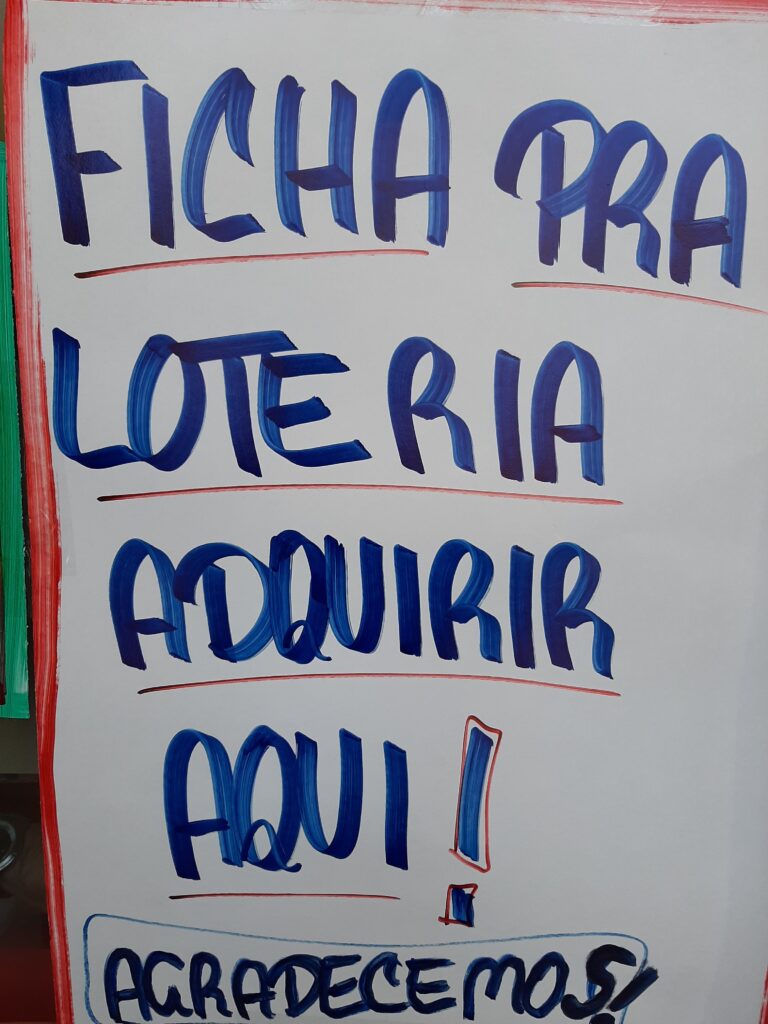 FICHA PRA
LOTERIA
ADQUIRIR
AQUI!
AGRADECEMOS!